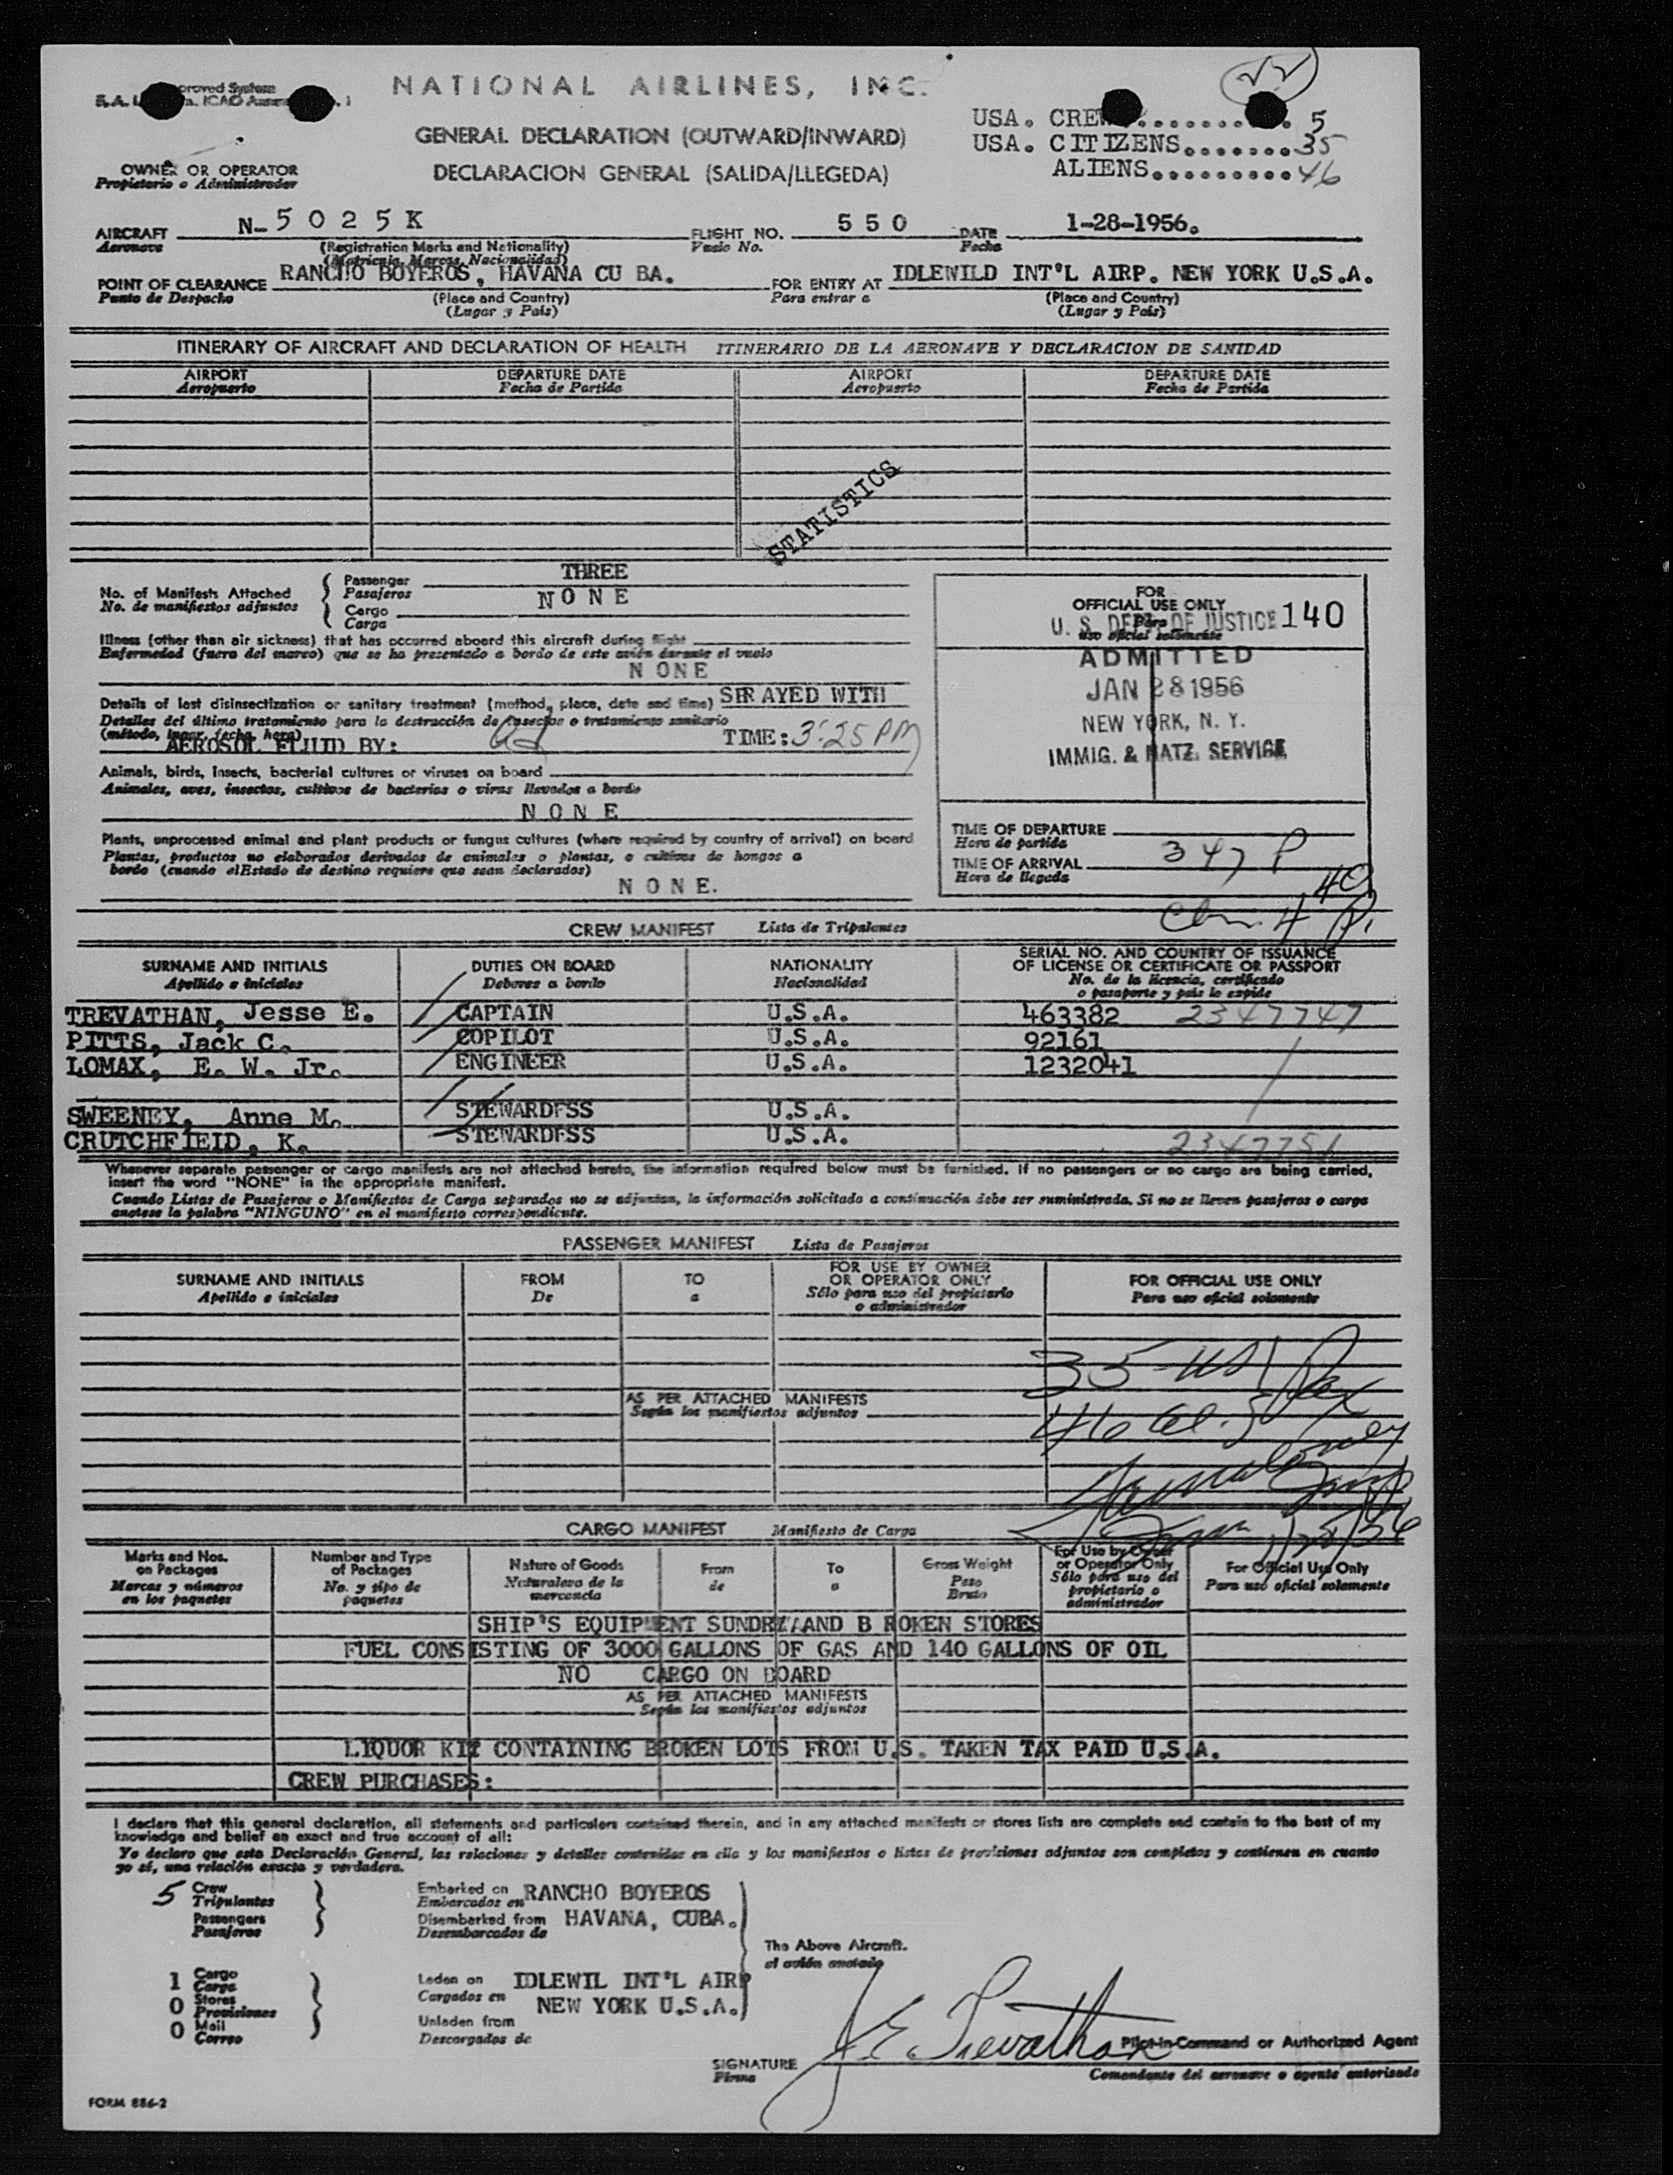 NATIONAL AIRLINES, INC.
GENERAL DECLARATION (OUTWARD/INWARD)
DECLARACION GENERAL (SALIDA/LLEGEDA)
USA. CREW 5
USA. CITIZENS.......35
ALIENS.........46
OWNER OR OPERATOR
Propietario o Administrador
AIRCRAFT N-5025K FLIGHT NO. 550 DATE 1-28-1956.
Aeronave (Registration Marks and Nationality) Vuelo No. Fecha
(Matricula, Marcas, Nacionalidad)
POINT OF CLEARANCE RANCHO BOYEROS, HAVANA CU BA. FOR ENTRY AT IDLEWILD INT'L AIRP. NEW YORK U.S.A.
Punto de Despacho (Place and Country) Para entrar a (Place and Country)
(Lugar y Pais) (Lugar y Pais)
ITINERARY OF AIRCRAFT AND DECLARATION OF HEALTH ITINERARIO DE LA AERONAVE Y DECLARACION DE SANIDAD
AIRPORT DEPARTURE DATE AIRPORT DEPARTURE DATE
Aeropuerto Fecha de Partida Aeropuerto Fecha de Partida
STATISTICS
No. of Manifests Attached Passenger THREE
No. de manifiestos adjuntos Pasajeros
Cargo NONE
Carga
Illness (other than air sickness) that has occurred aboard this aircraft during flight
Enfermedad (fuera del mareo) que se ha presentado a bordo de este avión durante el vuelo
NONE
Details of last disinsectization or sanitary treatment (method, place, date and time) SPRAYED WITH
Detalles del último tratamiento para la destrucción de insectos o tratamiento sanitario
(método, lugar, fecha, hora)
AEROSOL FLUID BY: TIME: 3:25 PM
Animals, birds, insects, bacterial cultures or viruses on board
Animales, aves, insectos, cultivos de bacterias o virus llevados a bordo
NONE
Plants, unprocessed animal and plant products or fungus cultures (where required by country of arrival) on board
Plantas, productos no elaborados derivados de animales o plantas, o cultivos de hongos a
bordo (cuando el Estado de destino requiere que sean declarados)
NONE.
FOR
OFFICIAL USE ONLY
Para
uso oficial solamente
U. S. DEPT. OF JUSTICE 140
ADMITTED
JAN 28 1956
NEW YORK, N. Y.
IMMIG. & NATZ. SERVICE
TIME OF DEPARTURE
Hora de partida
TIME OF ARRIVAL 347 P
Hora de llegada
CREW MANIFEST Lista de Tripulantes
SURNAME AND INITIALS DUTIES ON BOARD NATIONALITY SERIAL NO. AND COUNTRY OF ISSUANCE
OF LICENSE OR CERTIFICATE OR PASSPORT
Apellido e iniciales Deberes a bordo Nacionalidad No. de la licencia, certificado
o pasaporte y pais lo expide
TREVATHAN, Jesse E. CAPTAIN U.S.A. 463382 2347747
PITTS, Jack C. COPILOT U.S.A. 92161
LOMAX, E. W. Jr. ENGINEER U.S.A. 1232041
SWEENEY, Anne M. STEWARDESS U.S.A.
CRUTCHFIELD, K. STEWARDESS U.S.A. 2347751
Whenever separate passenger or cargo manifests are not attached hereto, the information required below must be furnished. If no passengers or no cargo are being carried,
insert the word "NONE" in the appropriate manifest.
Cuando Listas de Pasajeros o Manifiestos de Carga separados no se adjuntan, la información solicitada a continuación debe ser suministrada. Si no se lleven pasajeros o carga
anotese la palabra "NINGUNO" en el manifiesto correspondiente.
PASSENGER MANIFEST Lista de Pasajeros
SURNAME AND INITIALS FROM TO FOR USE BY OWNER
OR OPERATOR ONLY FOR OFFICIAL USE ONLY
Apellido e iniciales De a Sólo para uso del propietario
o administrador Para uso oficial solamente
35-US Pax
46 al.
AS PER ATTACHED MANIFESTS
Según los manifiestos adjuntos
1/28/56
CARGO MANIFEST Manifiesto de Carga
Marks and Nos.
on Packages
Marcas y números
en los paquetes
Number and Type
of Packages
No. y tipo de
paquetes
Nature of Goods
Naturaleza de la
mercancia
From
de
To
a
Gross Weight
Peso
Bruto
For Use by Owner
or Operator Only
Sólo para uso del
propietario o
administrador
For Official Use Only
Para uso oficial solamente
SHIP'S EQUIPMENT SUNDRY AND B ROKEN STORES
FUEL CONSISTING OF 3000 GALLONS OF GAS AND 140 GALLONS OF OIL
NO CARGO ON BOARD
AS PER ATTACHED MANIFESTS
Según los manifiestos adjuntos
LIQUOR KIT CONTAINING BROKEN LOTS FROM U.S. TAKEN TAX PAID U.S.A.
CREW PURCHASES:
I declare that this general declaration, all statements and particulars contained therein, and in any attached manifests or stores lists are complete and contain to the best of my
knowledge and belief an exact and true account of all:
Yo declaro que esta Declaración General, las relaciones y detalles contenidos en ella y los manifiestos o listas de provisiones adjuntos son completos y contienen en cuanto
yo sé, una relación exacta y verdadera.
5 Crew
Tripulantes
Passengers
Pasajeros
Embarked on RANCHO BOYEROS
Embarcados en
Disembarked from HAVANA, CUBA.
Desembarcados de
The Above Aircraft.
el avión anotado
1 Cargo
Carga
0 Stores
Provisiones
0 Mail
Correo
Laden on IDLEWIL INT'L AIRP
Cargados en NEW YORK U.S.A.
Unladen from
Descargados de
SIGNATURE J E Trevathan Pilot-in-Command or Authorized Agent
Firma Comandante del aeronave o agente autorizado
FORM 886-2